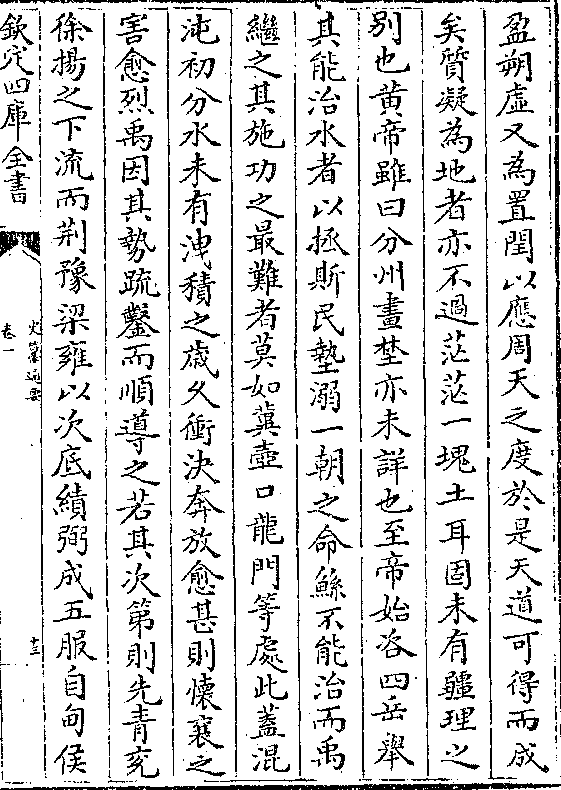 盈朔虚又為置閏以應周天之度於是天道可得而成
矣質凝為地者亦不過茫茫一塊土耳固未有疆理之
别也黄帝雖曰分州畫埜亦未詳也至帝始咨四岳舉
其能治水者以拯斯民墊溺一朝之命鯀不能治而禹
繼之其施功之最難者莫如冀壺口龍門等處此蓋混
沌初分水未有洩積之歳久衝決奔放愈甚則懐襄之
害愈烈禹因其勢疏鑿而順導之若其次第則先青兖
徐揚之下流而荆豫梁雍以次底績弼成五服自甸侯
欽定四庫全書
卷一
史纂通要
十三